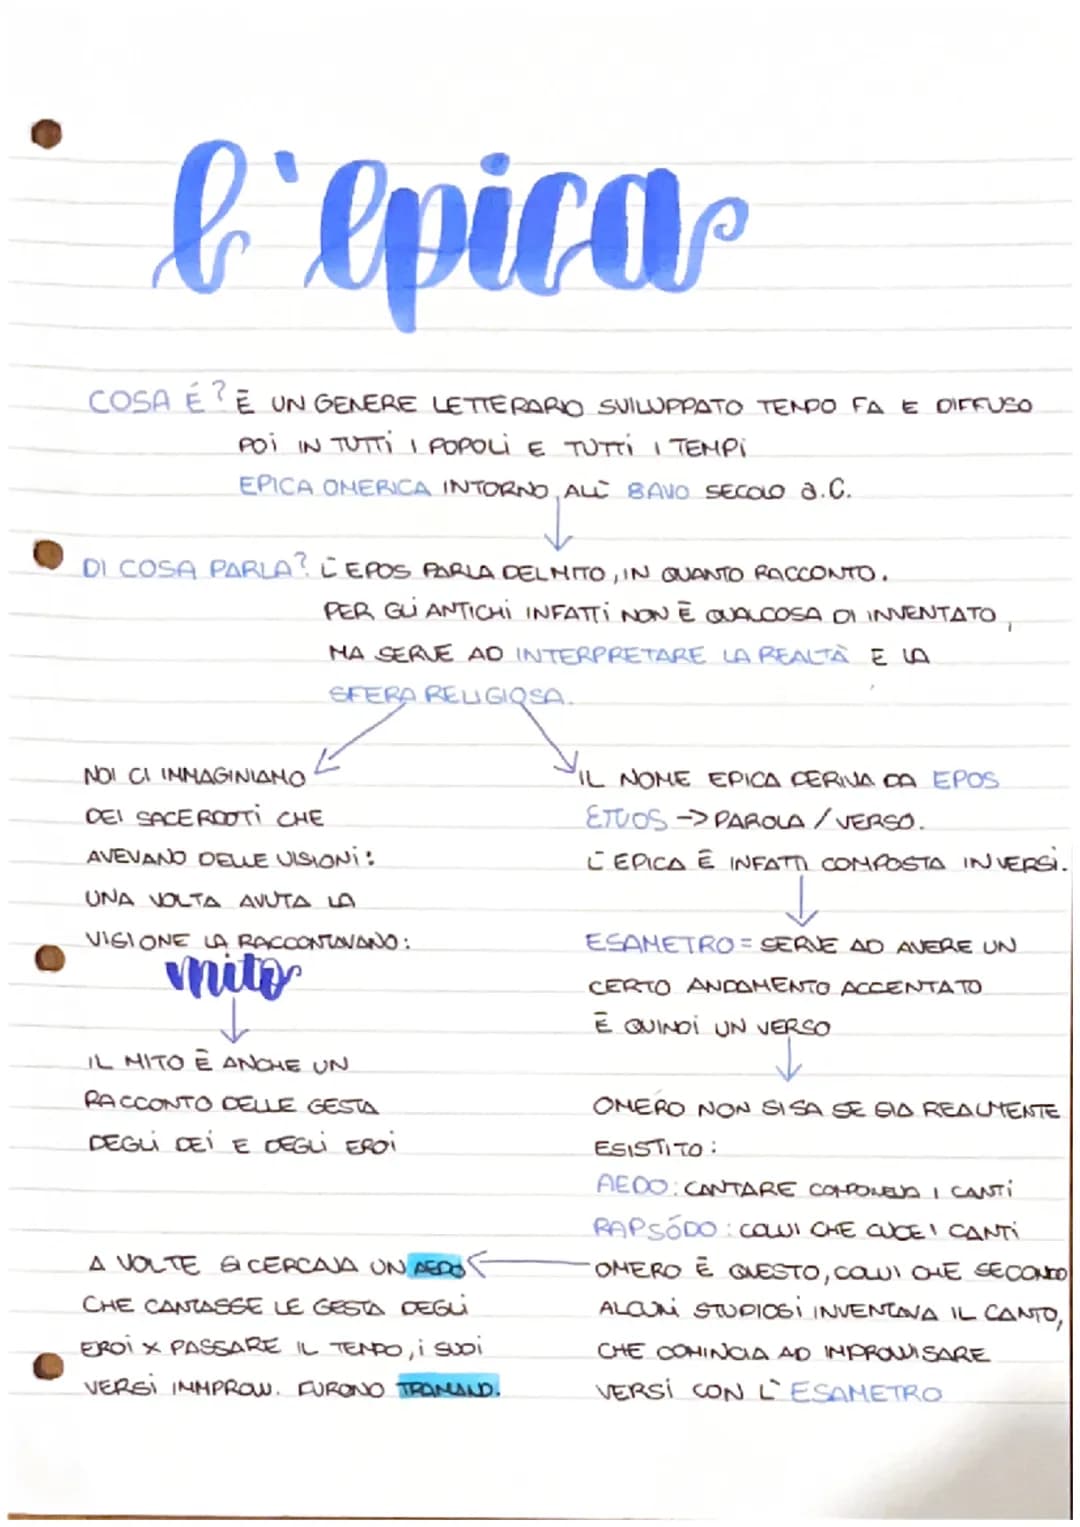 l'epica
COSA É? È UN GENERE LETTERARIO SVILUPPATO TEMPO FA E DIFFUSO
POI IN TUTTI I POPOLI E TUTTI I TEMPI
EPICA OMERICA INTORNO ALL' 8AVO SECOLO a.C.
DI COSA PARLA? L'EPOS PARLA DEL MITO, IN QUANTO RACCONTO.
PER GLI ANTICHI INFATTI NON È QUALCOSA DI INVENTATO,
MA SERVE AD INTERPRETARE LA REALTÀ E LA
SFERA RELIGIOSA.
NOI CI IMMAGINIAMO
DEI SACERDOTI CHE
AVEVANO DELLE VISIONI:
UNA VOLTA AVUTA LA
VISIONE LA RACCONTAVANO:
mito
IL MITO È ANCHE UN
RACCONTO DELLE GESTA
DEGLI DEI E DEGLI EROI
A VOLTE SI CERCAVA UN AEDO
CHE CANTASSE LE GESTA DEGLI
EROI X PASSARE IL TEMPO, i SUOI
VERSI IMMPROVV. FURONO TRAMAND.
IL NOME EPICA DERIVA DA EPOS
→ PAROLA / VERSO.
L'EPICA È INFATTI COMPOSTA IN VERSI.
ESAMETRO = SERVE AD AVERE UN
CERTO ANDAMENTO ACCENTATO
È QUINDI UN VERSO
OMERO NON SI SA SE SIA REALMENTE
ESISTITO:
AEDO: CANTARE COMPONEVA I CANTI
RAPSÓDO: COLUI CHE CUCE I CANTI
OMERO È QUESTO, COLUI CHE SECONDO
ALCUNI STUDIOSI INVENTAVA IL CANTO,
CHE COMINCIA AD IMPROVVISARE
VERSI CON L'ESAMETRO